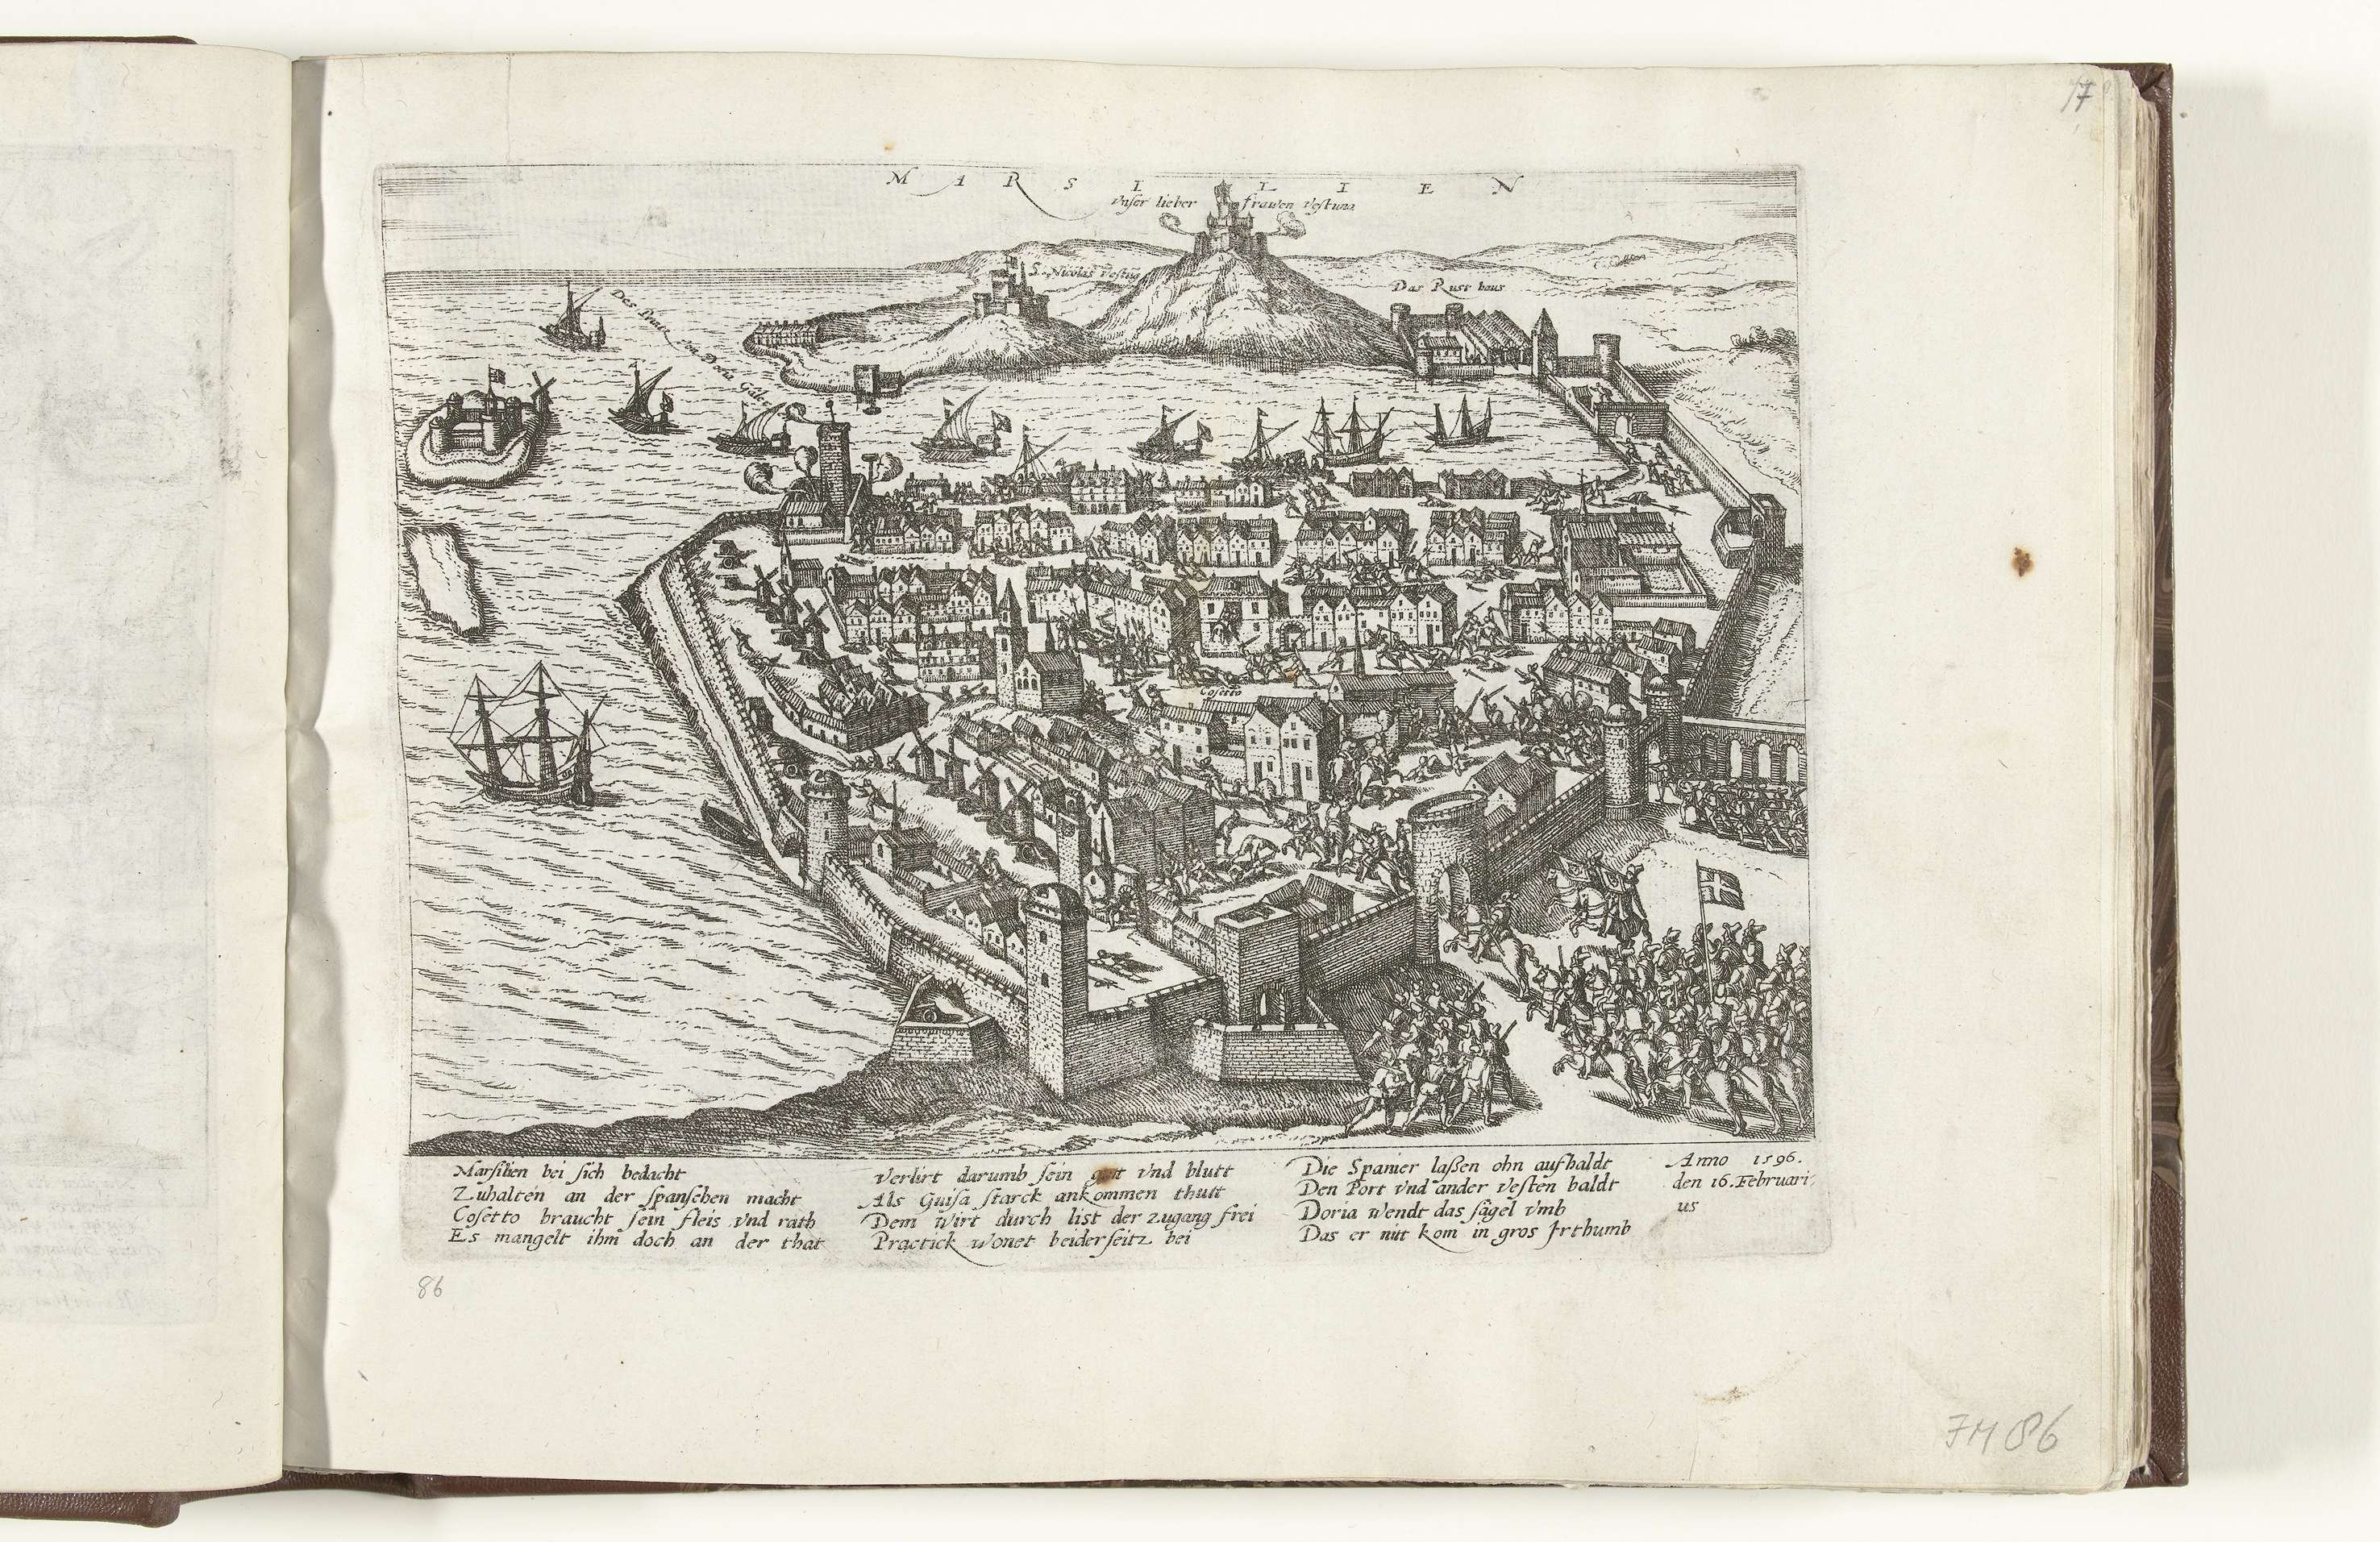 17
MARSILIEN
Vnser lieber frawen Vestung
S. Nicolas Vestug
Das Rust haus
Des Printz von Doria Galeen
Cosetto
Marsilien bei sich bedacht
Zuhalten an der spanschen macht
Cosetto braucht sein fleis vnd rath
Es mangelt ihm doch an der that
Verlirt darumb sein gut vnd blutt
Als Guisa starck ankommen thutt
Dem wirt durch list der zugang frei
Practick wonet beiderseitz bei
Die Spanier laßen ohn aufhaldt
Den Port vnd ander Vesten baldt
Doria wendt das sägel vmb
Das er nit kom in gros Jrthumb
Anno 1596.
den 16. Februari
us
86
FH 86